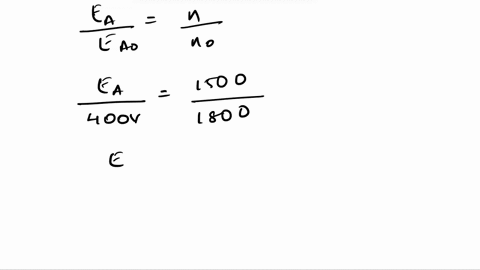 E_A / E_A0 = n / n0
E_A / 400V = 1500 / 1800
E